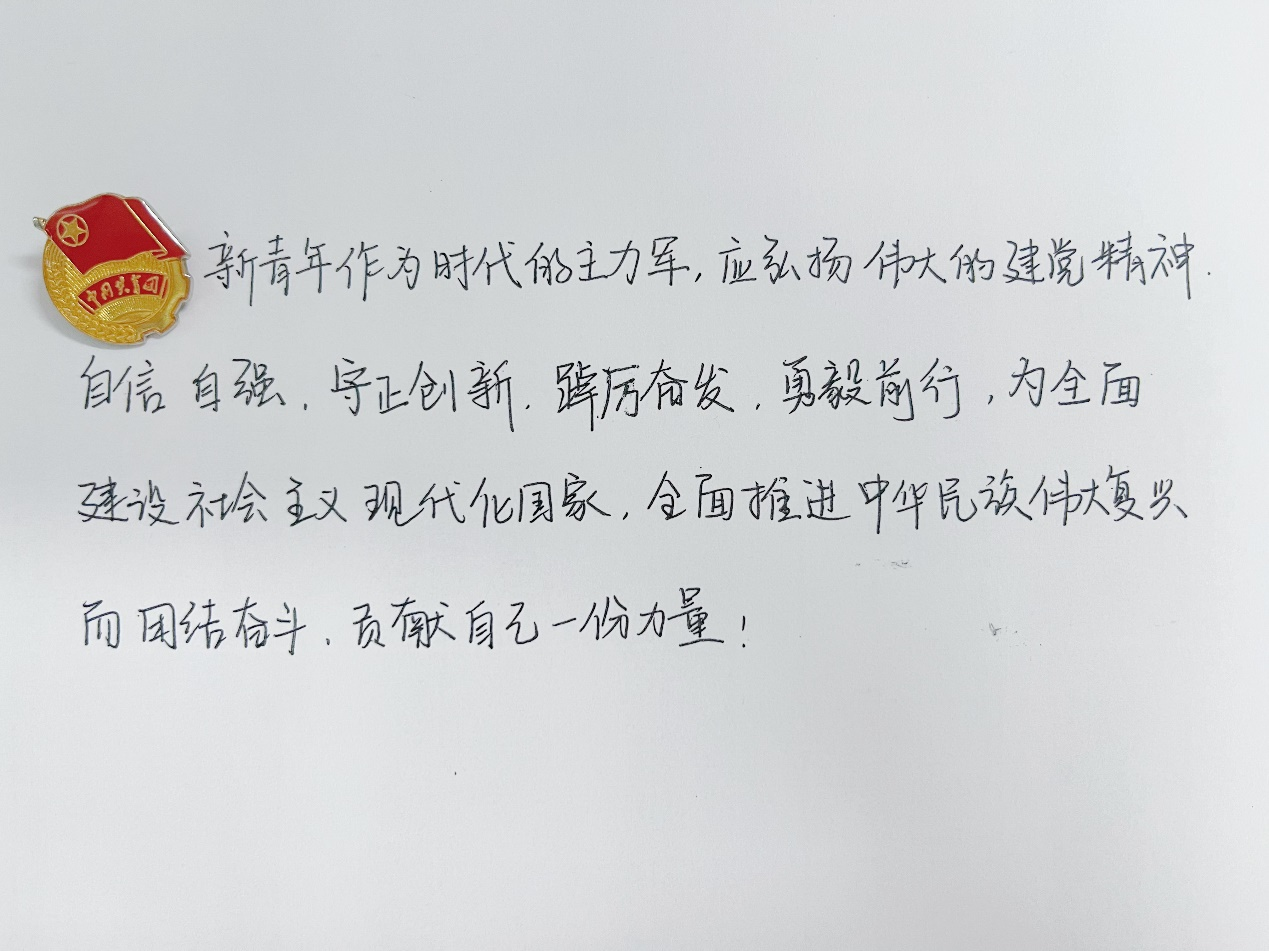 中国共青团
新青年作为时代的主力军,应弘扬伟大的建党精神.
自信自强,守正创新,踔厉奋发,勇毅前行,为全面
建设社会主义现代化国家,全面推进中华民族伟大复兴
而团结奋斗,贡献自己一份力量!